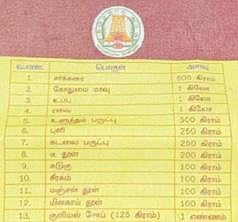 வ.எண். பொருள் அளவு
1. சர்க்கரை 500 கிராம்
2. கோதுமை மாவு 1 கிலோ
3. உப்பு 1 கிலோ
4. ரவை 1 கிலோ
5. உளுத்தம் பருப்பு 300 கிராம்
6. புளி 250 கிராம்
7. கடலை பருப்பு 250 கிராம்
8. டீ தூள் 200 கிராம்
9. கடுகு 100 கிராம்
10. சீரகம் 100 கிராம்
11. மஞ்சள் தூள் 100 கிராம்
12. மிளகாய் தூள் 100 கிராம்
13. குளியல் சோப் (125 கிராம்) 1 எண்ணம்